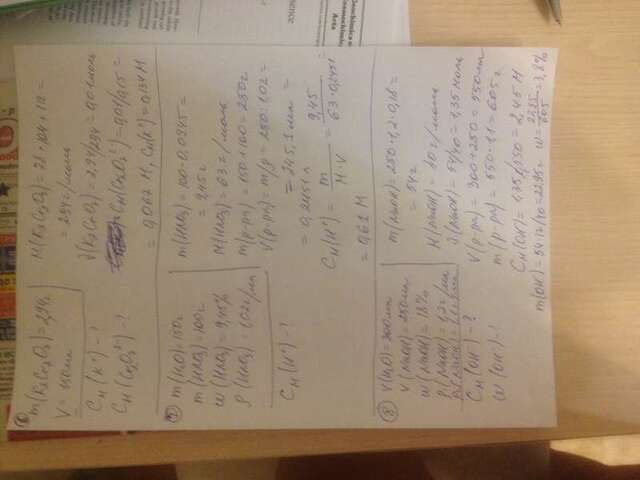 ⑥ m(K₂Cr₂O₇) = 2,94г
V = 150мл
C_M(K⁺) - ?
C_M(Cr₂O₇²⁻) - ?
M(K₂Cr₂O₇) = 78 + 104 + 112 =
= 294 г/моль
ν(K₂Cr₂O₇) = 2,94/294 = 0,01моль
C_M(Cr₂O₇²⁻) = 0,01/0,15 =
= 0,067 M, C_M(K⁺) = 0,134 M
⑦ m(H₂O) = 150г
m(HNO₃) = 100г
w(HNO₃) = 9,45%
ρ(HNO₃) = 1,02г/мл
C_M(H⁺) - ?
m(HNO₃) = 100·0,0945 =
= 9,45г
M(HNO₃) = 63г/моль
m(р-ра) = 150 + 100 = 250г
V(р-ра) = m/ρ = 250 : 1,02 =
= 245,1 мл =
= 0,2451 л
C_M(H⁺) = m / M·V = 9,45 / 63·0,2451 =
= 0,61 M
⑧ V(H₂O) = 300мл
V(NaOH) = 250мл
w(NaOH) = 18%
ρ(NaOH) = 1,2г/мл
C_M(OH⁻) - ?
w(OH⁻) - ?
m(NaOH) = 250·1,2·0,18 =
= 54г
M(NaOH) = 40г/моль
ν(NaOH) = 54/40 = 1,35 моль
V(р-ра) = 300 + 250 = 550мл
m(р-ра) = 550·1,1 = 605г
C_M(OH⁻) = 1,35/0,550 = 2,45 M
m(OH⁻) = 54·17/40 = 22,95г w = 22,95/605 = 3,8%